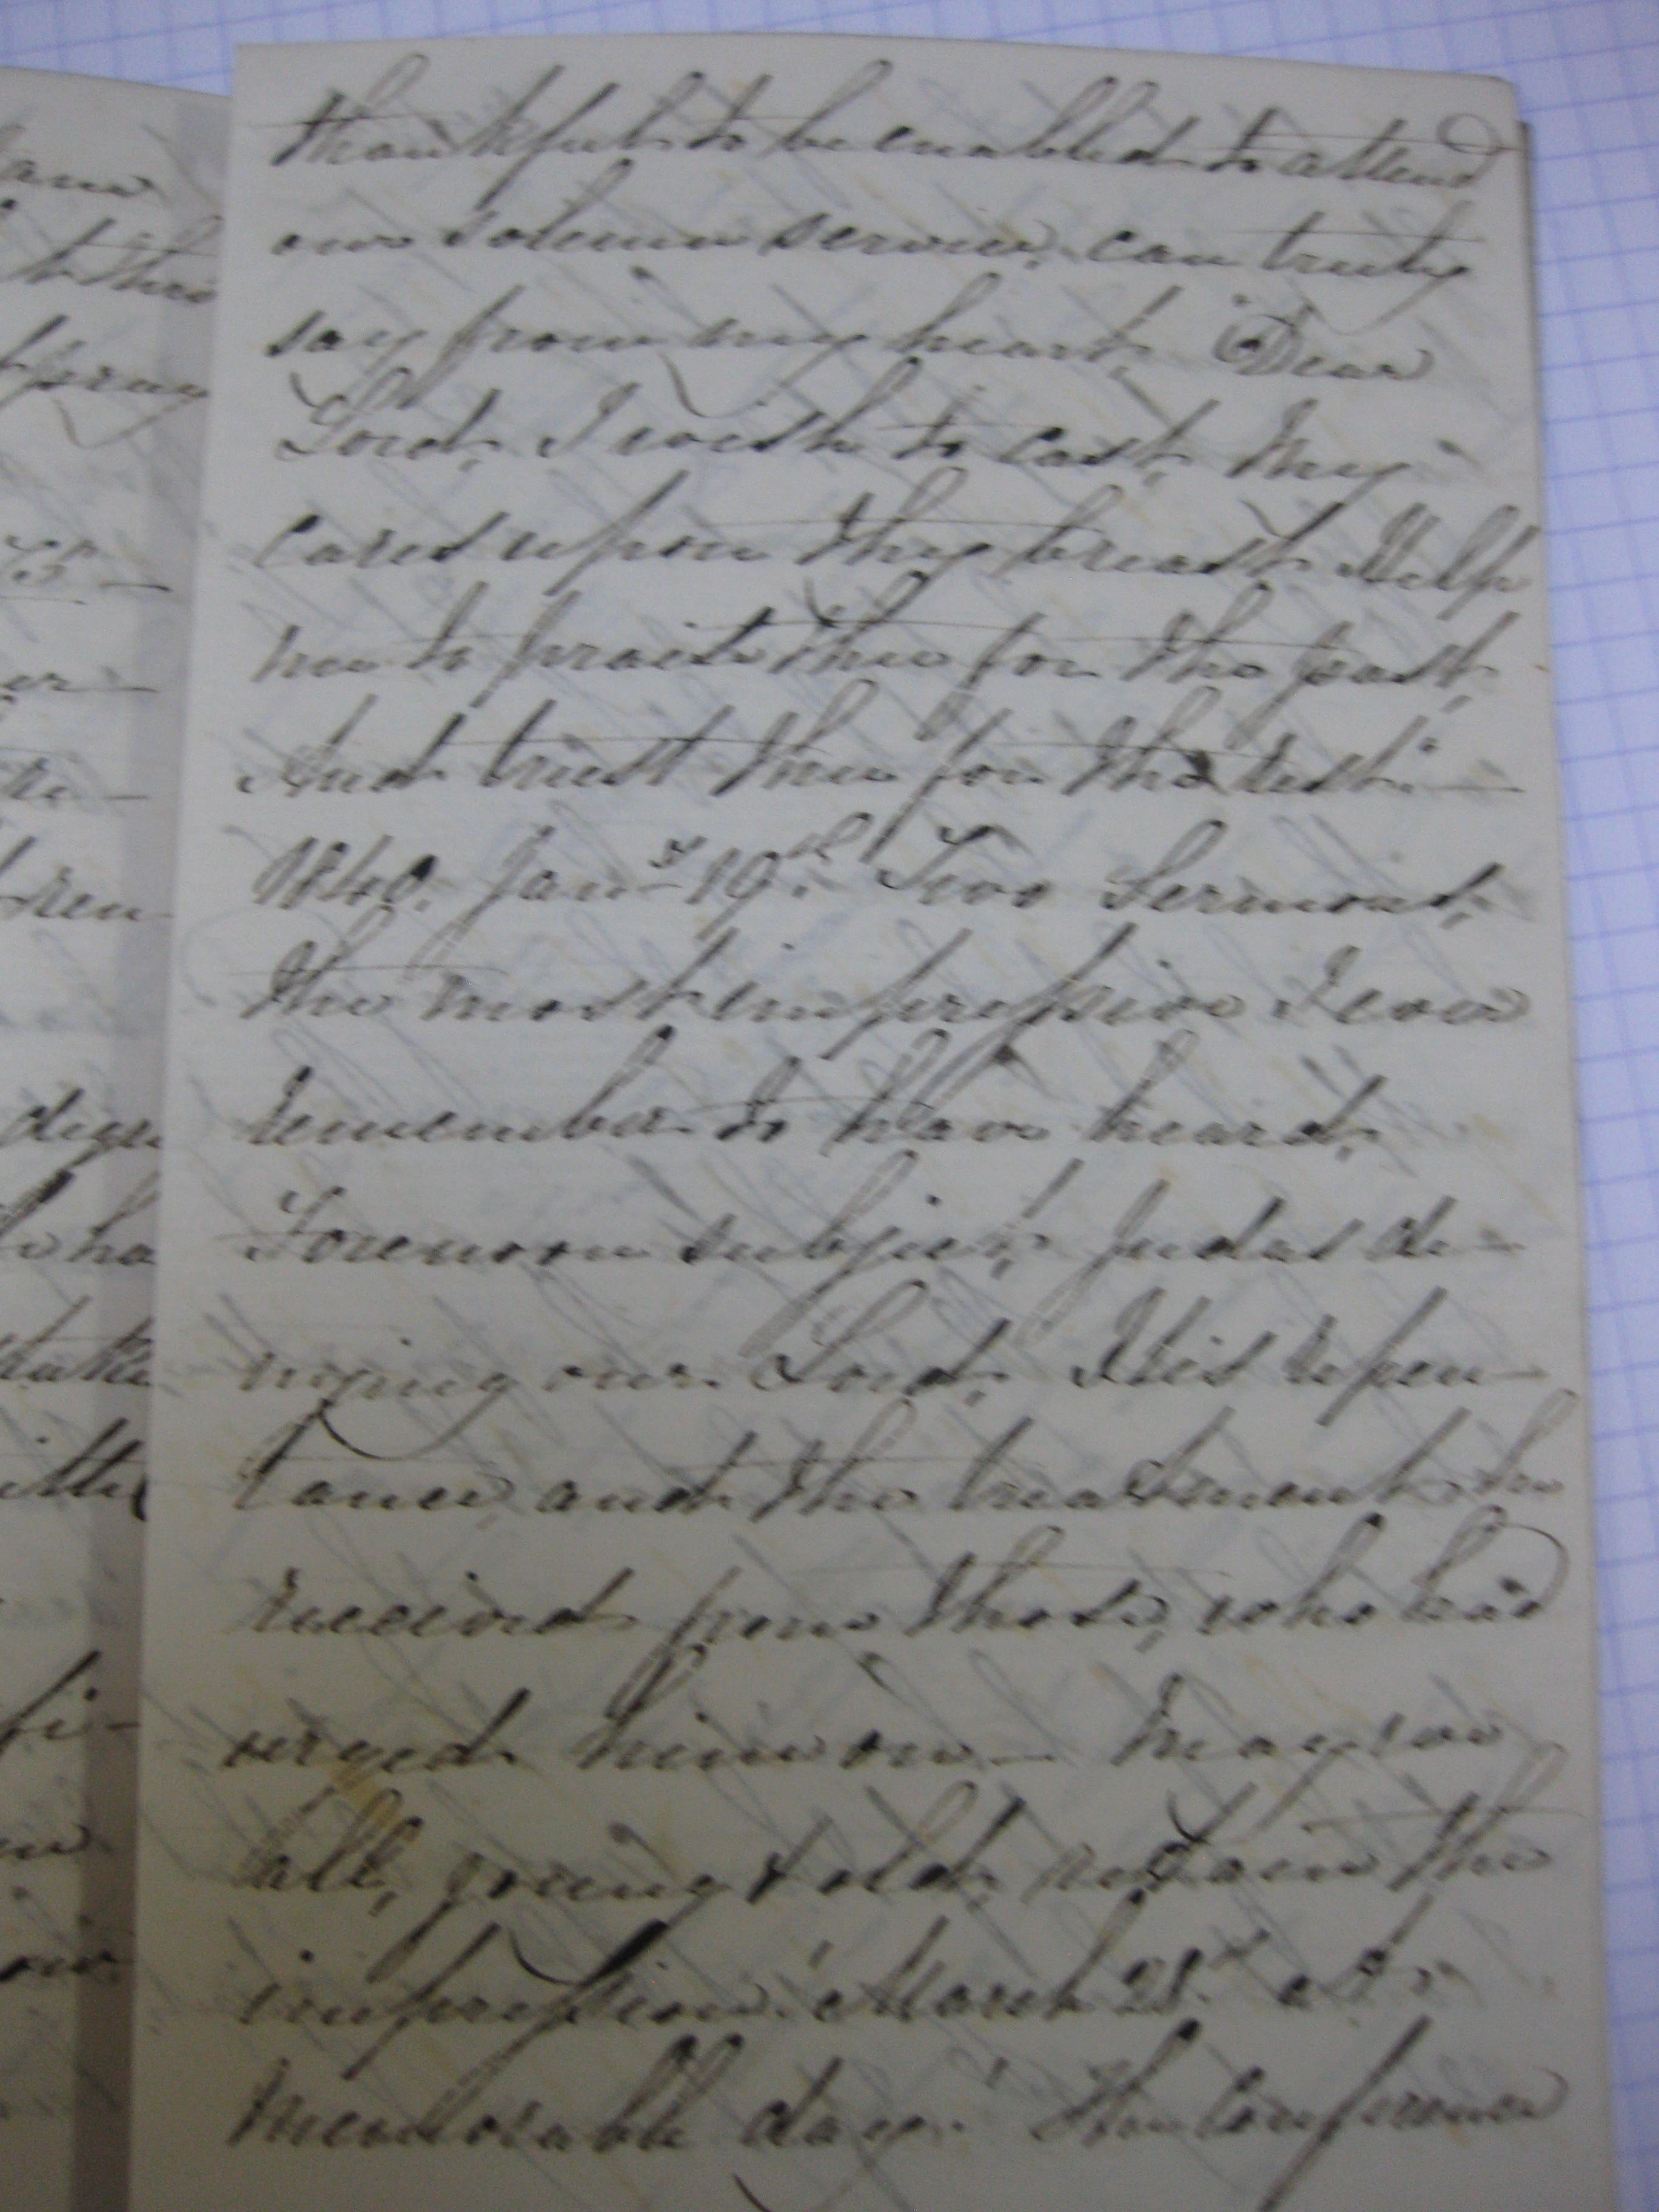 thankful to be enabled to attend
our solemn service, can truly
say from my heart, "Dear
Lord, I wish to cast, My
cares upon thy breast. Help
me to praise thee for the past,
And trust thee for the rest." —
1840. Jany 19th. Two Sermons,
the most impressive I ever
remember to have heard.
Forenoon subject, Judas de-
nying our Lord, His repen-
tance, and the treatment he
received from those, who had
urged him on — May we
all, young & old, retain the
impression. March 28th. A
memorable day. The Conference